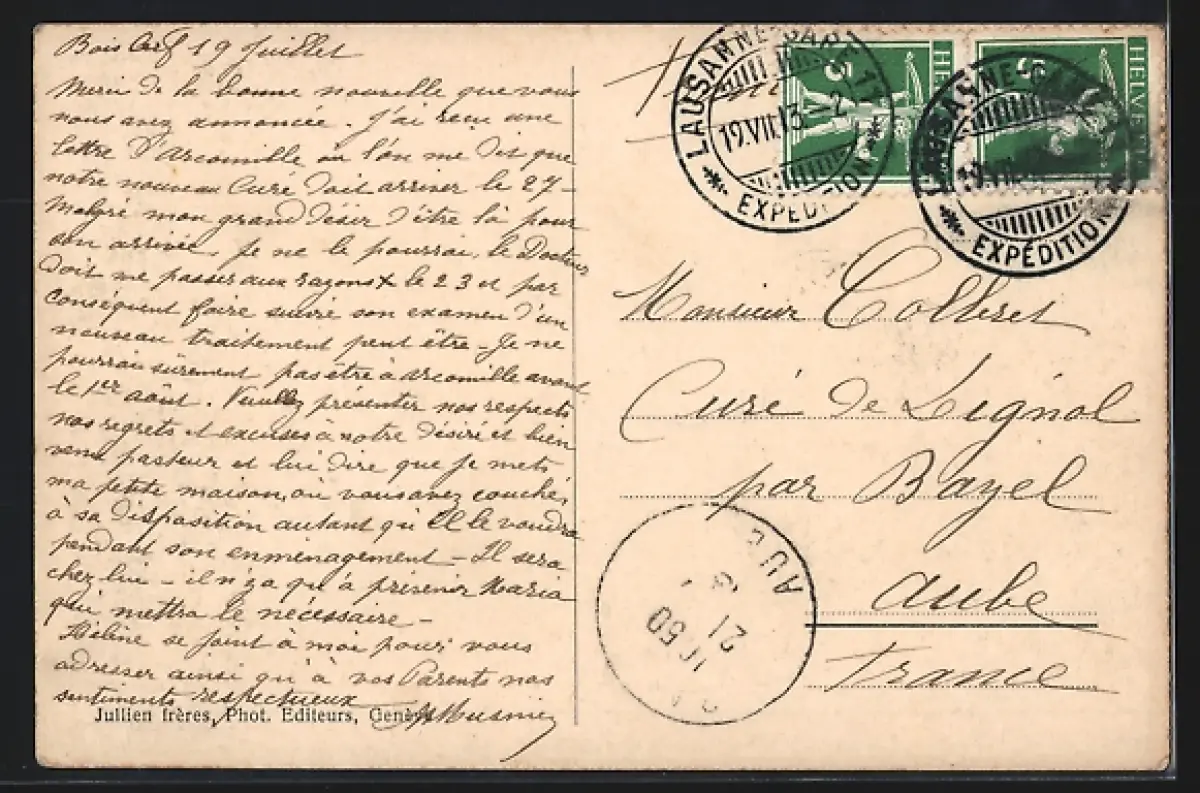 Bois Cerf 19 Juillet
Merci de la bonne nouvelle que vous
nous avez annoncée. J'ai reçu une
lettre d'Arconville où l'on me dit que
notre nouveau Curé doit arriver le 27 –
Malgré mon grand désir d'être là pour
son arrivée, je ne le pourrai, le Docteur
doit me passer aux rayons X le 23 et par
conséquent faire suivre son examen d'un
nouveau traitement peut être – Je ne
pourrai sûrement pas être à Arconville avant
le 1er août. Veuillez présenter nos respects
nos regrets et excuses à notre désiré et bien
venu pasteur et lui dire que je mets
ma petite maison, où vous avez couché,
à sa disposition autant qu'il le voudra
pendant son enménagement – Il sera
chez lui – il n'y a qu'à prévenir Maria
qui mettra le nécessaire –
Hélène se joint à moi pour vous
adresser ainsi qu'à vos Parents nos
sentiments respectueux
Jullien frères, Phot. Editeurs, Genève
LAUSANNE-GARE
19.VII.13
EXPÉDITION
5
HELVETIA
LAUSANNE-GARE
EXPÉDITION
HELVETIA
Monsieur Colleret
Curé de Lignol
par Bayel
Aube
France
AUBE
21